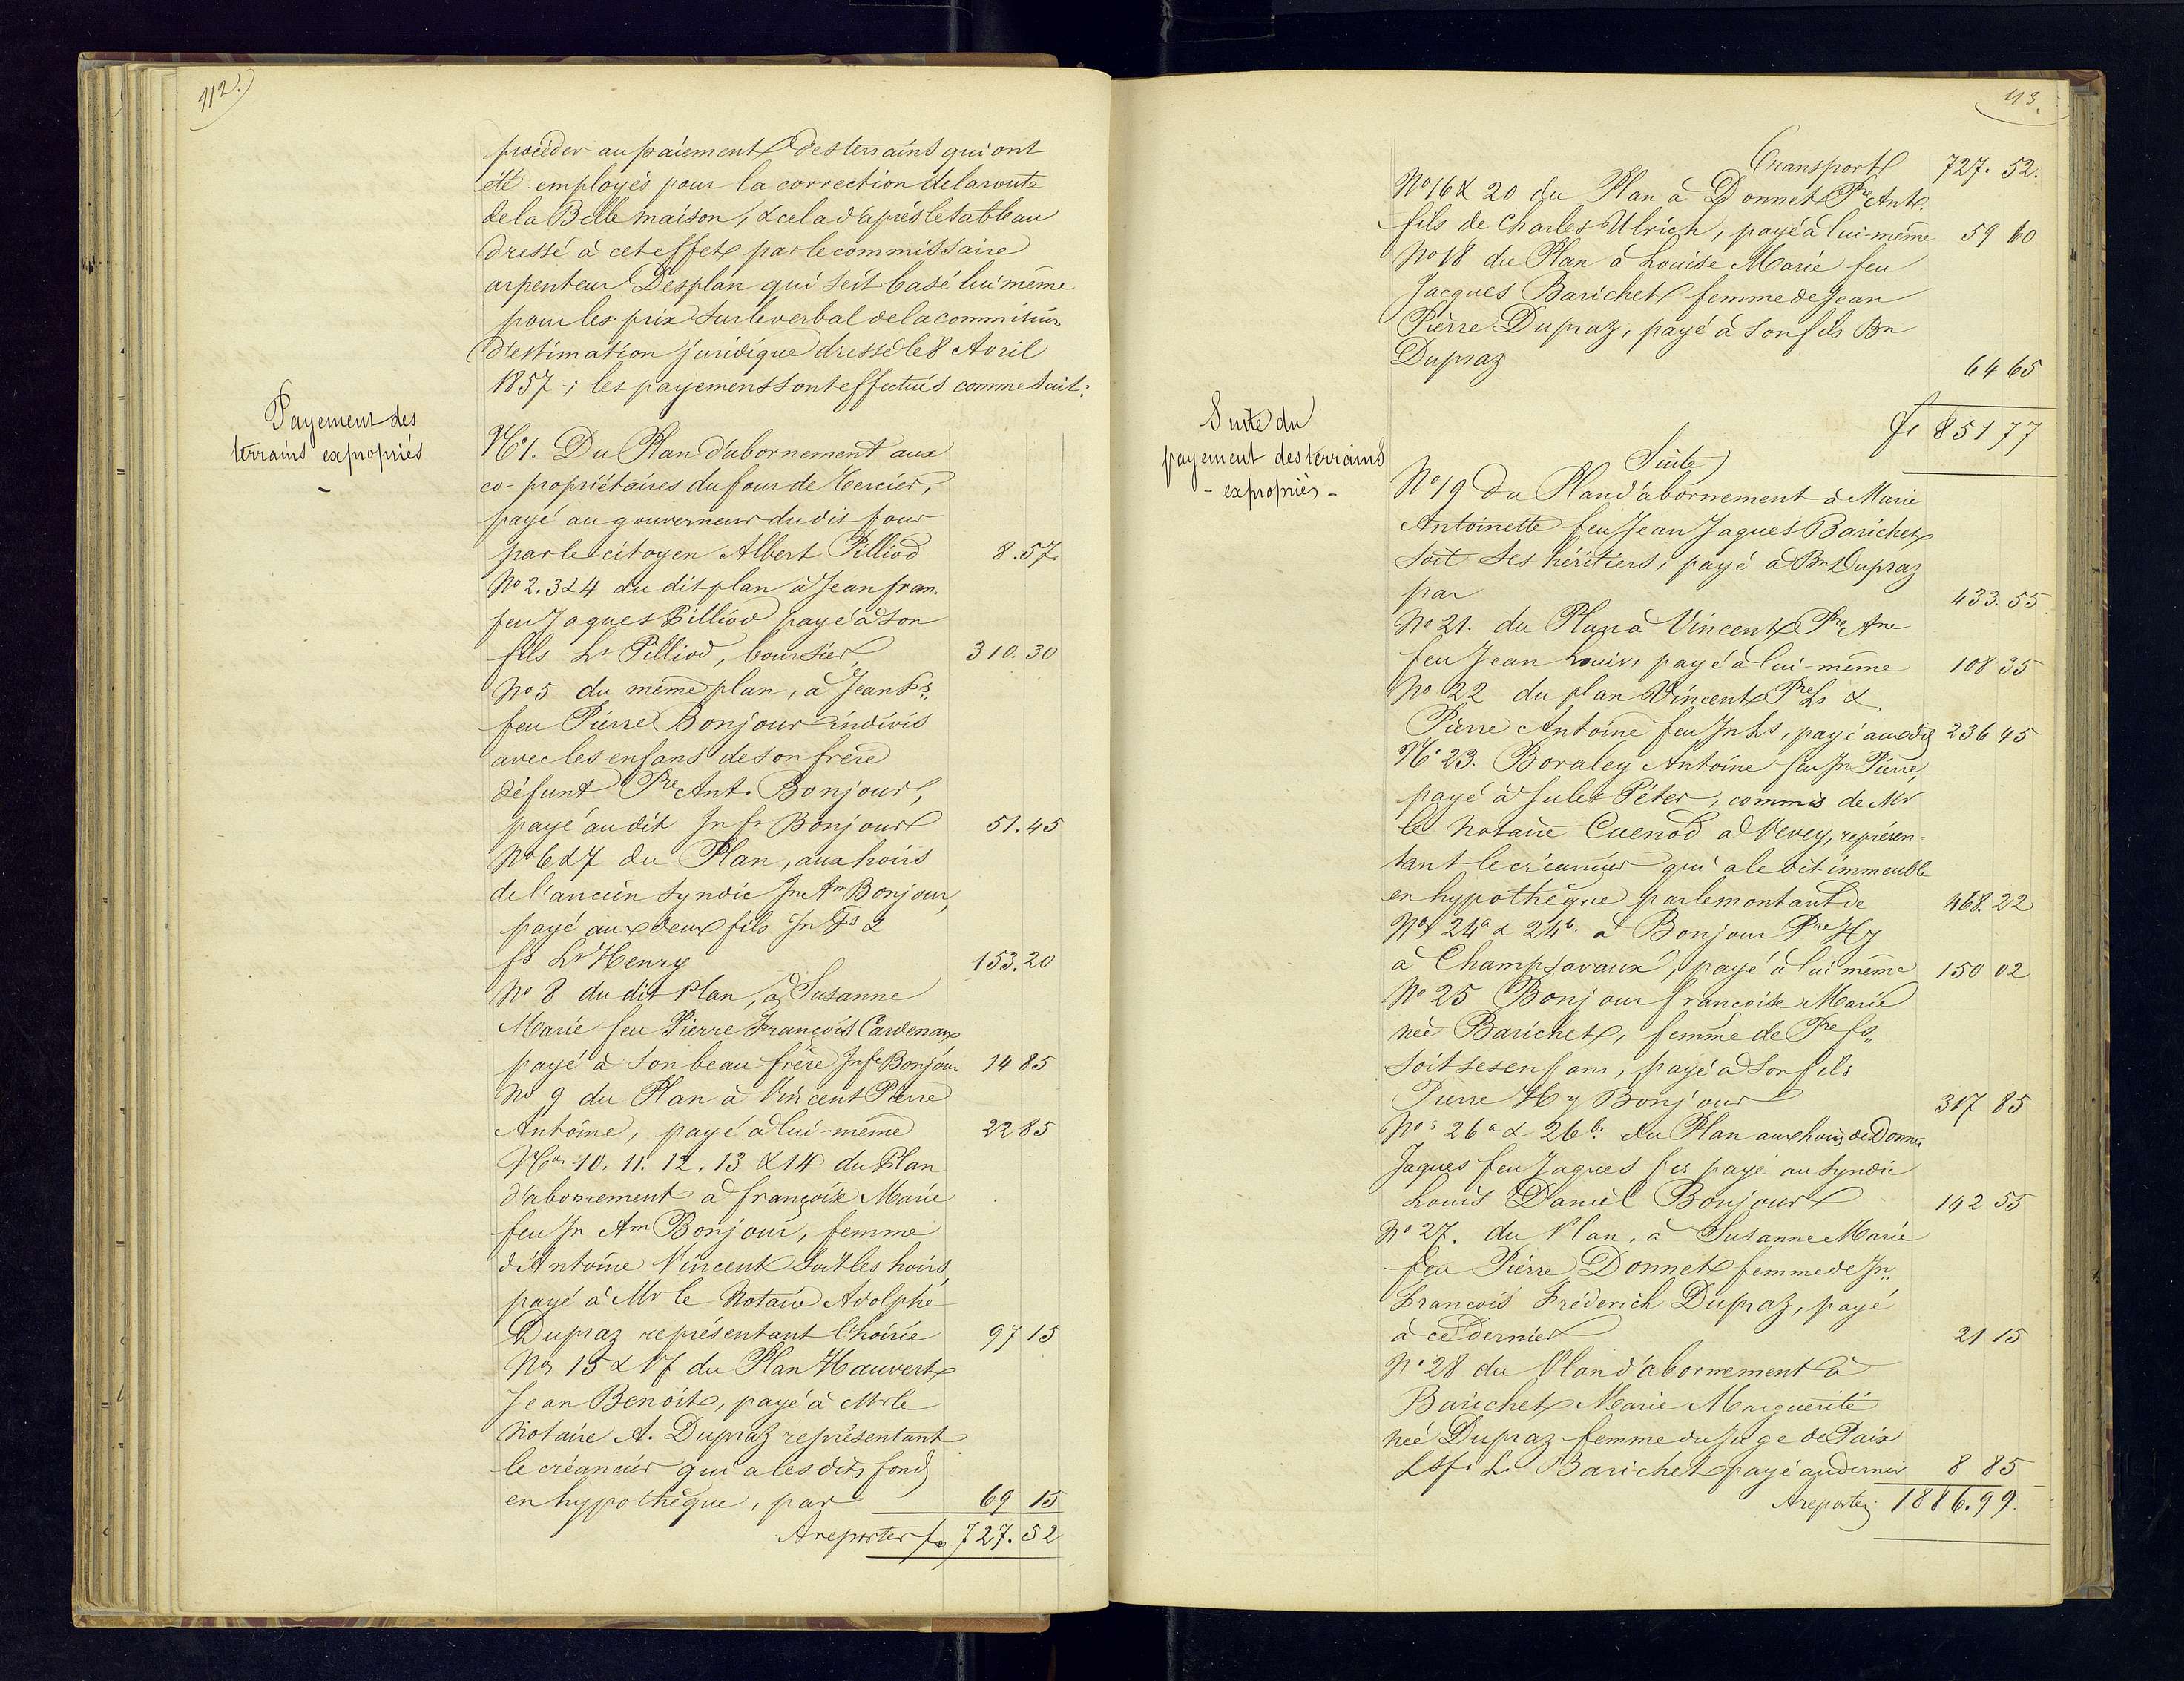 112.
procéder au païement des terrains qui ont
été employés pour la correction de la route
de la Belle maison, & cela d'après le tableau
dressé à cet effet par le commissaire
arpenteur Desplan qui s'est basé lui même
pour les prix sur le verbal de la commission
d'estimation juridique dressé le 8 Avril
1857 ; les payements sont effectués comme suit :
Payement des
terrains expropriés
-
No 1. Du Plan d'abornement aux
co-propriétaires du four de Cercier,
payé au gouverneur du dit four
par le citoyen Albert Pilliod 8.57.
No 2. 3 & 4 du dit plan à Jean fran.
feu Jaques Pilliod payé à son
fils Ls Pilliod, boursier, 310.30
No 5 du même plan, à Jean Fs
feu Pierre Bonjour indivis
avec les enfans de son frère
défunt Pre Ant. Bonjour,
payé au dit Jn fs Bonjour 51.45
No 6 & 7 du Plan, aux hoirs
de l'ancien syndic Jn Am Bonjour,
payé aux deux fils Jn Fs &
fs Ls Henry 153.20
No 8 du dit Plan, à Susanne
Marie feu Pierre François Cardenaux
payé à son beau frère Jn fs Bonjour 14 85
No 9 du Plan à Vincent Pierre
Antoine, payé à lui-même 22 85
Nos 10. 11. 12. 13 & 14 du Plan
d'abornement à françoise Marie
feu Jn Am Bonjour, femme
d'Antoine Vincent soit les hoirs,
payé à Mr le Notaire Adolphe
Dupraz représentant l'hoirie 97 15
Nos 15 & 17 du Plan Hauvert
Jean Benoit, payé à Mr le
Notaire A. Dupraz représentant
le créancier qui a les dits fonds
en hypothèque, par 69 15
A reporter fs 727.52
113.
Transport 727. 52.
No 16 & 20 du Plan à Donnet Pre Ant.
fils de Charles Ulrich, payé à lui-même 59 60
No 18 du Plan à Louise Marie feu
Jacques Barichet femme de Jean
Pierre Dupraz, payé à son fils Bn
Dupraz 64 65
fs 851 77
Suite du
payement des terrains
- expropriés -
Suite
No 19 du Plan d'abornement à Marie
Antoinette feu Jean Jaques Barichet
soit ses héritiers, payé à Bn Dupraz
par 433.55
No 21. du Plan à Vincent Pre Ane
feu Jean Louis, payé à lui-même 108 35
No 22 du plan Vincent Pre Ls &
Pierre Antoine feu Jn Ls, payé aux dits 236 45
No 23. Boraley Antoine feu Jn Pierre,
payé à Jules Péter, commis de Mr
le Notaire Cuenod à Vevey, représen-
tant le créancier qui a le dit immeuble
en hypothèque par le montant de 468.22
Nos 24a & 24b. à Bonjour Pre Hy
à Champsavaux, payé à lui même 150 02
No 25 Bonjour francoise Marie
née Barichet, femme de Pre fs
soit ses enfans, payé à son fils
Pierre Hy Bonjour 317 85
Nos 26a & 26b. du Plan aux hoirs de Donnet
Jaques feu Jaques fs payé au Syndic
Louis Daniel Bonjour 142 55
No 27. du Plan, à Susanne Marie
feu Pierre Donnet femme de Jn
François Fréderich Dupraz, payé
à ce dernier 21 15
No 28 du Plan d'abornement à
Barichet Marie Marguerite
née Dupraz femme du juge de Paix
Barichet payé au dernier 8 85
A reporter 1886.99.